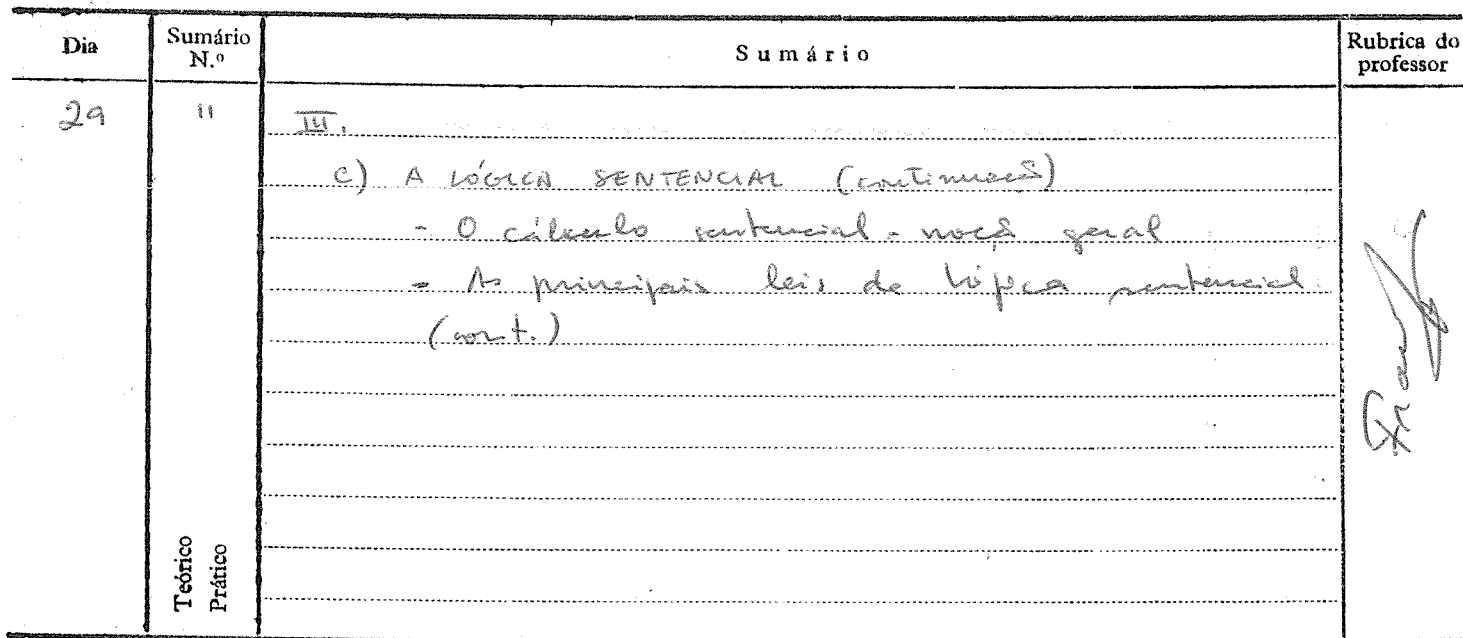 Dia Sumário N.º Sumário Rubrica do professor
29 11 III.
c) A LÓGICA SENTENCIAL (continuação)
- O cálculo sentencial - noção geral
- As principais leis da lógica sentencial
(cont.)
Teórico
Prático